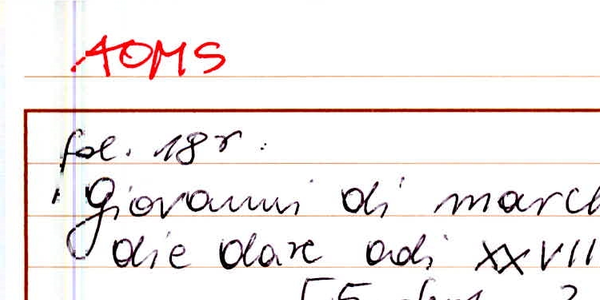 AOMS
fol. 18r.
Giovanni di march
die dare adi XXVII